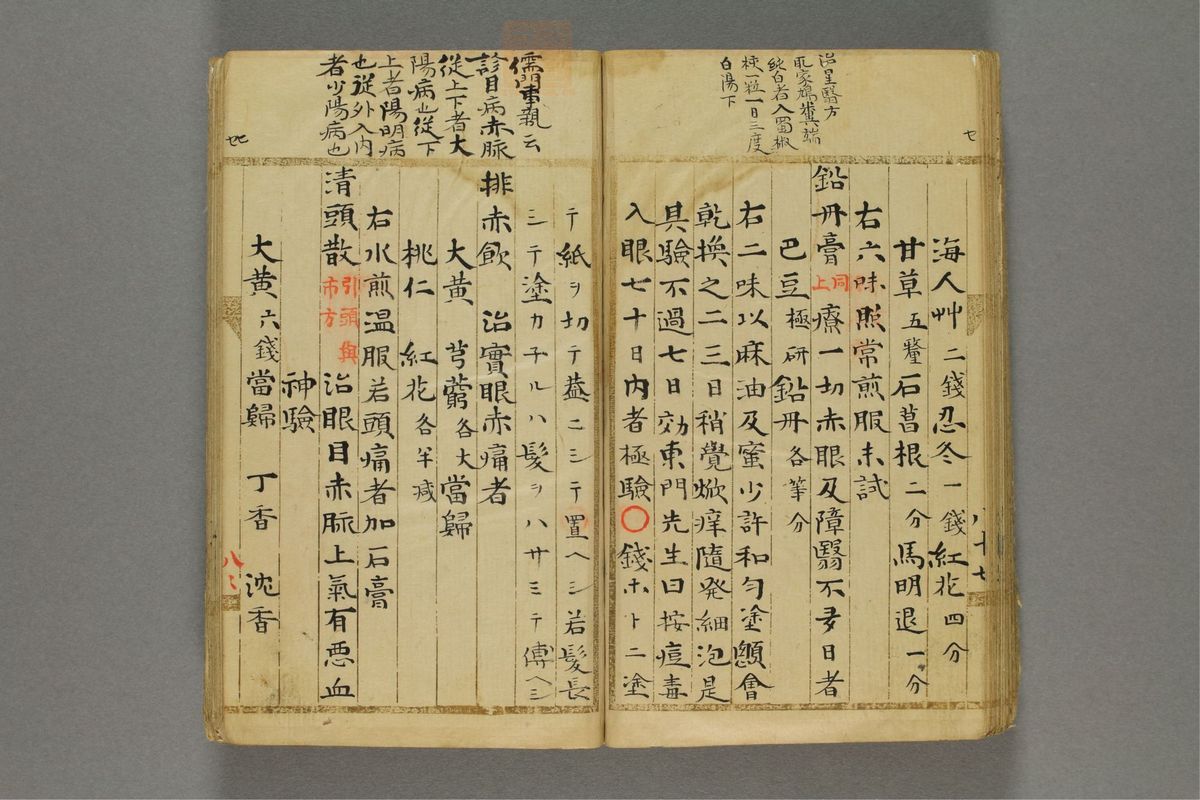 治星翳方
取家鳩糞端
純白者入蜀椒
核一粒一日三度
白湯下
海人艸 二錢 忍冬 一錢 紅花 四分
甘草 五釐 石菖根 二分 馬明退 一分
右六味照常煎服未試
鉛丹膏 同上 療一切赤眼及障翳不多日者
巴豆 極研 鉛丹 各等分
右二味以麻油及蜜少許和勻塗顖會
乾換之二三日稍覺焮痒隨発細泡是
其驗不過七日効東門先生曰按痘毒
入眼七十日內者極驗〇錢ホトニ塗
八十七
儒門事親云
診目病赤脉
從上下者太
陽病也從下
上者陽明病
也從外入內
者少陽病也
テ紙ヲ切テ蓋ニシテ置ヘシ若髮長
シテ塗カ子ルハ髮ヲハサミテ傅ヘシ
排赤飲 治實眼赤痛者
大黃 芎藭 各大 當歸
桃仁 紅花 各半減
右水煎温服若頭痛者加石膏
清頭散 引頭與市方 治眼目赤脉上氣有悪血
神驗
大黃 六錢 當歸 丁香 沈香